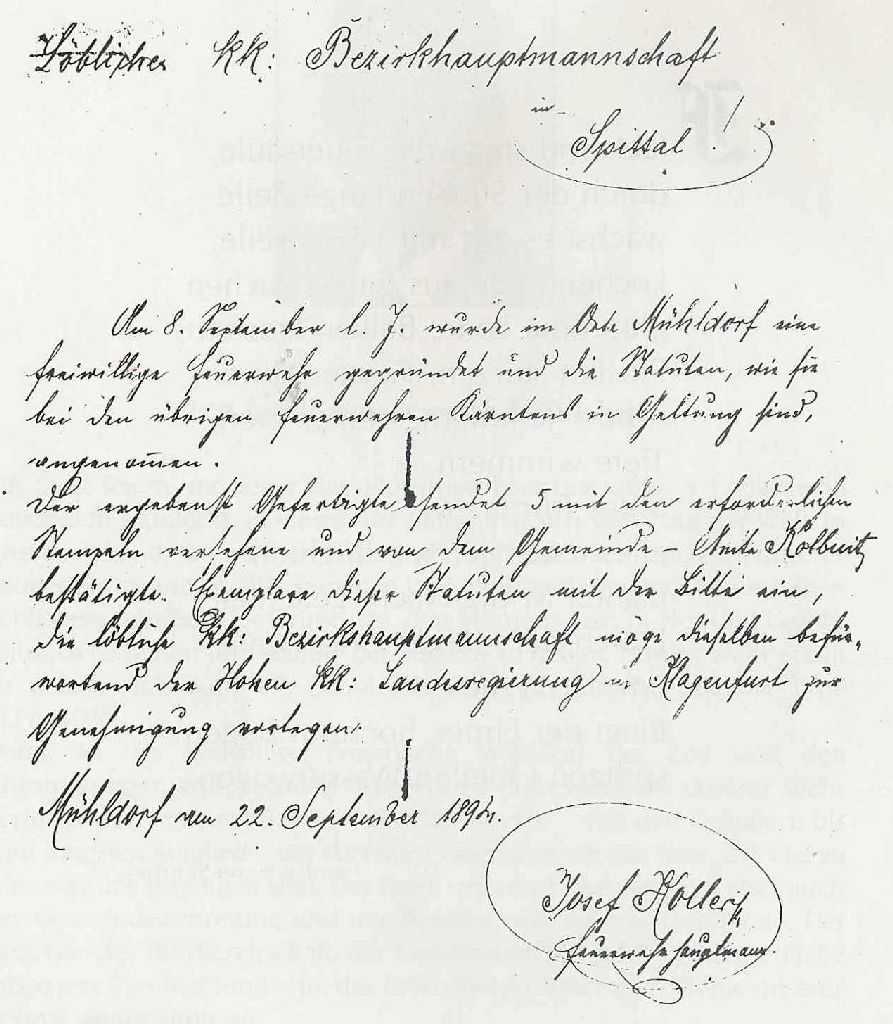 Löbliche kk: Bezirkhauptmannschaft
in
Spittal!
Am 8. September l. J. wurde im Orte Mühldorf eine
freiwillige Feuerwehr gegründet und die Statuten, wie sie
bei den übrigen Feuerwehren Kärntens in Geltung sind,
angenommen.
Der ergebenst Gefertigte sendet 5 mit den erforderlichen
Stempeln versehene und von dem Gemeinde-Amte Kolbnitz
bestätigte Exemplare dieser Statuten mit der Bitte ein,
die löbliche kk: Bezirkshauptmannschaft möge dieselben befür-
wortend der Hohen kk: Landesregierung in Klagenfurt zur
Genehmigung vorlegen.
Mühldorf am 22. September 1894.
Josef Koller
Feuerwehrhauptmann